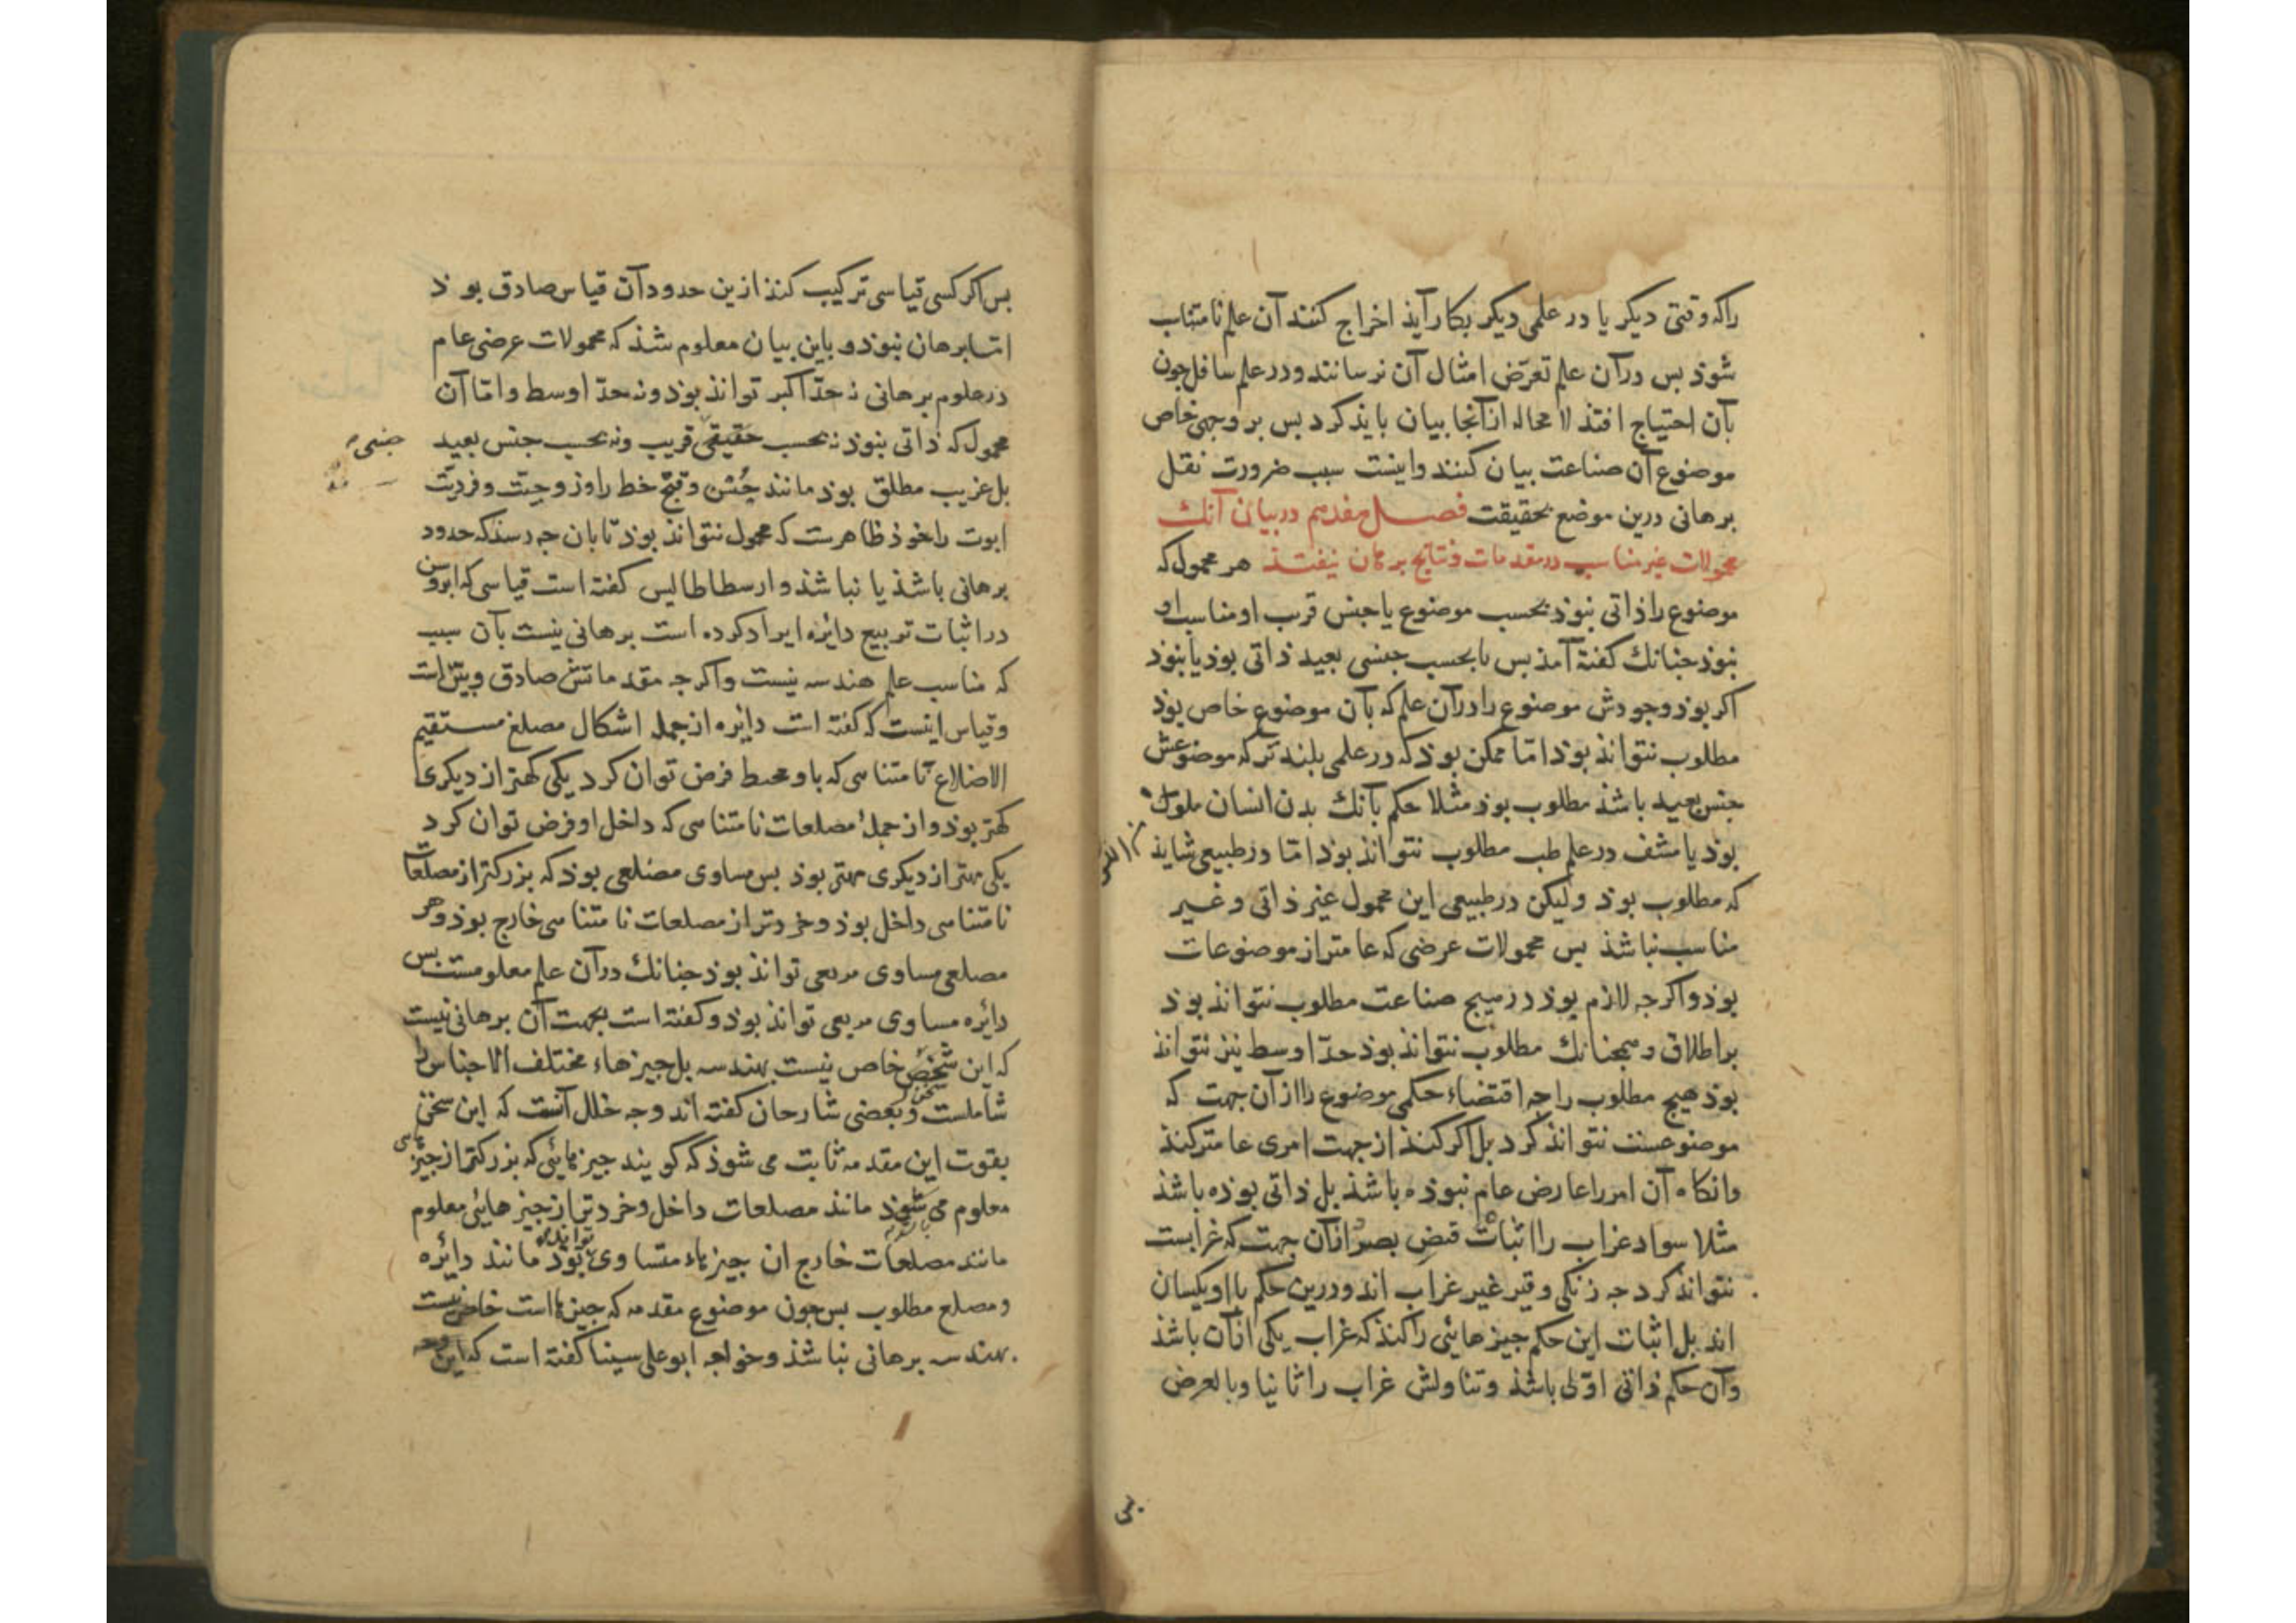 راکه وقتی دیکر یا در علمی دیکر بکار آیذ اخراج کنند آن علم نامتناب
شوذ بس درآن علم تعرّض امثال آن نرسانند و در علم سافل جون
بآن احتیاج افتذ لا محاله ازآنجا بیان بایذ کرد بس بر وجهی خاص
موضوع آن صناعت بیان کنند واینست سبب ضرورت نقل
برهانی درین موضع بحقیقت فصل هفدهم در بیان آنک
محمولات غیر مناسب در مقدمات و نتایج برهان نیفتذ هر محمول که
موضوع را ذاتی نبوذ بحسب موضوع یا جنس قرب او مناسب او
نبوذ جنانک کفته آمذ بس یا بحسب جنسی بعید ذاتی بوذ یا نبوذ
اکر بوذ وجودش موضوع را درآن علم که بآن موضوع خاص بوذ
مطلوب نتوانذ بوذ امّا ممکن بوذ که در علمی بلندتر که موضوعش
جنس بعید باشذ مطلوب بوذ مثلا حکم بآنک بدن انسان ملون
بوذ یا مشف در علم طب مطلوب نتوانذ بوذ امّا در طبیعی شایذ
که مطلوب بوذ ولیکن در طبیعی این محمول غیر ذاتی و غیر
مناسب نباشذ بس محمولات عرضی که عامتر از موضوعات
بوذ واکرجه لازم بوذ در هیچ صناعت مطلوب نتوانذ بوذ
بر اطلاق و همجنانک مطلوب نتوانذ بوذ حدّ اوسط نیز نتوانذ
بوذ هیچ مطلوب را جه اقتضاء حکمی موضوع را ازآن جهت که
موضوعست نتوانذ کرد بل اکر کنذ از جهت امری عامتر کنذ
وانکاه آن امر را عارض عام نبوذه باشذ بل ذاتی بوذه باشذ
مثلا سواد غراب را اثبات قبض بصر ازآن جهت که غرابست
نتوانذ کرد جه زنکی و قیر غیر غراب اند و درین حکم با او یکسان
اند بل اثبات این حکم جیزهائی را کنذ که غراب یکی ازآن باشذ
وآن حکم ذاتی اوّلی باشذ و تناولش غراب را ثانیا و بالعرض
بس
بس اکر کسی قیاسی ترکیب کنذ ازین حدود آن قیاس صادق بوذ
امّا برهان نبوذ و باین بیان معلوم شذ که محمولات عرضی عام
در علوم برهانی نه حدّ اکبر توانذ بوذ و نه حدّ اوسط و امّا آن
محمول که ذاتی نبوذ نه بحسب حقیقی قریب ونه بحسب جنس بعید
جنسی
بل غریب مطلق بوذ مانند حُسْن و قبح خط را و زوجیّت و فردیّت
ابوت را خوذ ظاهرست که محمول نتوانذ بوذ تا بان جه رسذ که حدود
برهانی باشذ یا نباشذ و ارسطاطالیس کفته است قیاسی که ابروسن
در اثبات تربیع دایره ایراد کرده است برهانی نیست بآن سبب
که مناسب علم هندسه نیست واکرجه مقدماتش صادق و بیّن است
و قیاس اینست که کفته است دایره از جمله اشکال مضلع مستقیم
الاضلاع نامتناهی که باو محیط فرض توان کرد یکی کهتر از دیکری
کهتر بوذ و از جملهٔ مضلعات نامتناهی که داخل او فرض توان کرد
یکی مهتر از دیکری مهتر بوذ بس مساوی مضلعی بوذ که بزرکتر از مضلعات
نامتناهی داخل بوذ و خردتر از مضلعات نامتناهی خارج بوذ و هر
مضلعی مساوی مربعی توانذ بوذ جنانک درآن علم معلومست بس
دایره مساوی مربعی توانذ بوذ و کفته است بجهت آن برهانی نیست
که این شخص خاص نیست بهندسه بل جیزهاء مختلف الاجناس را
سخن
شاملست و بعضی شارحان کفته اند وجه خلل آنست که این سخن
بقوت این مقدمه ثابت می شوذ که کویند جیزهائی که بزرکتر از جیزهائی
معلوم می شوذ مانند مضلعات داخل و خردتر از جیزهائی معلوم
مانند مضلعات خارج ان جیزهاء متساوی بوذ مانند دائره
توانذ
و مضلع مطلوب بس جون موضوع مقدمه که جیزهااست خاص نیست
بهندسه برهانی نباشذ و خواجه ابوعلی سینا کفته است که این وجه